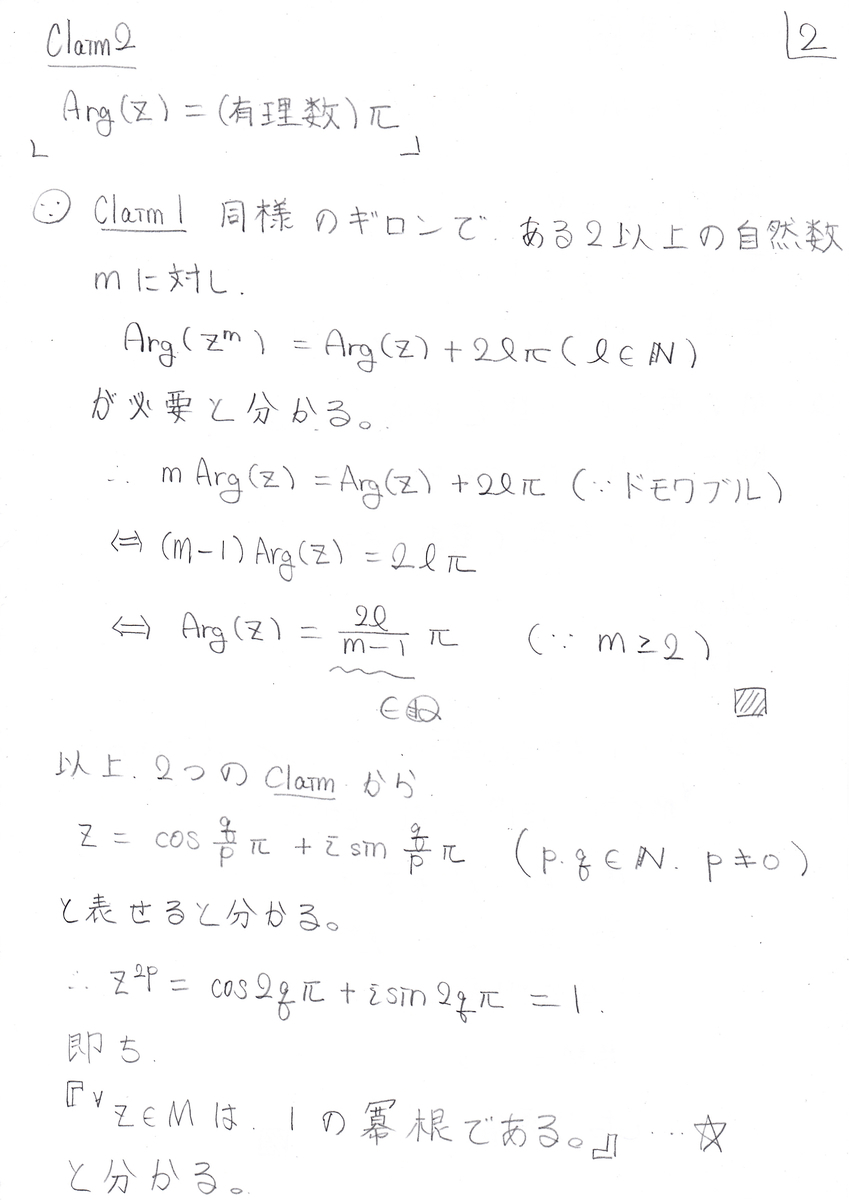 Claim2
2
Arg(z) = (有理数)π
∵ Claim1 同様のギロンで. ある2以上の自然数
mに対し.
Arg(z^m) = Arg(z) + 2lπ (l∈ℕ)
が必要と分かる。
∴ m Arg(z) = Arg(z) + 2lπ (∵ドモワブル)
⇔ (m-1) Arg(z) = 2lπ
⇔ Arg(z) = \frac{2l}{m-1} π (∵ m≥2)
∈ℚ
以上. 2つの Claim から
z = cos \frac{q}{p} π + i sin \frac{q}{p} π (p.q∈ℕ. p≠0)
と表せると分かる。
∴ z^{2p} = cos2qπ + i sin2qπ = 1.
即ち.
『∀z∈M は. 1の冪根である。』 … ☆
と分かる。